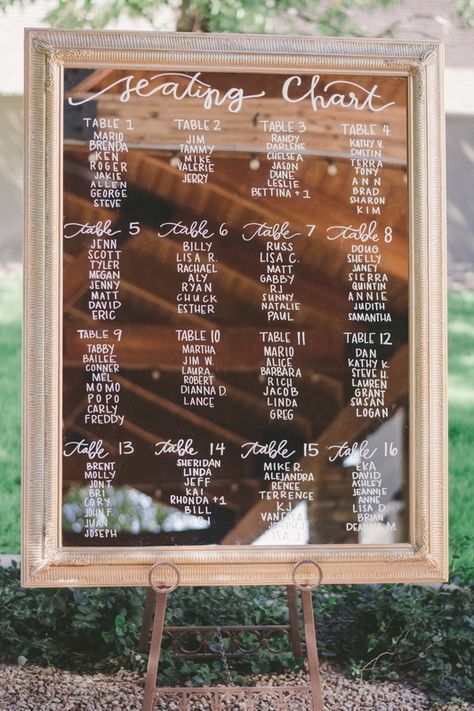 seating Chart
TABLE 1
MARIO
BRENDA
KEN
ROGER
JAKIE
ALLEN
GEORGE
STEVE
TABLE 2
JIM
TAMMY
MIKE
VALERIE
JERRY
TABLE 3
RANDY
DARLENE
CHELSEA
JASON
DUNE
LESLIE
BETTINA +1
TABLE 4
KATHY V.
DUSTIN
TERRA
TONY
ANN
BRAD
SHARON
KIM
table 5
JENN
SCOTT
TYLER
MEGAN
JENNY
MATT
DAVID
ERIC
table 6
BILLY
LISA R.
RACHAEL
ALY
RYAN
CHUCK
ESTHER
table 7
RUSS
LISA C.
MATT
GABBY
RJ
SUNNY
NATALIE
PAUL
table 8
DOUG
SHELLY
JANEY
SIERRA
QUINTIN
ANNIE
JUDITH
SAMANTHA
TABLE 9
TABBY
BAILEE
CONNER
MEL
MOMO
POPO
CARLY
FREDDY
TABLE 10
MARTHA
JIM W.
LAURA
ROBERT
DIANNA D.
LANCE
TABLE 11
MARIO
ALICE
BARBARA
RICH
JACOB
LINDA
GREG
TABLE 12
DAN
KATHY K.
STEVE H.
LAUREN
GRANT
SUSAN
LOGAN
table 13
BRENT
MOLLY
JON T.
BRI
CORY
JOHN F.
JUAN
JOSEPH
table 14
SHERIDAN
LINDA
JEFF
KAI
RHONDA +1
BILL
LISA
table 15
MIKE R.
ALEJANDRA
RENEE
TERRENCE
KJ
VANESSA
JOSEPH
LISA J.
table 16
EKA
DAVID
ASHLEY
JEANNIE
ANNE
LISA D.
BRIAN
DEANNA M.